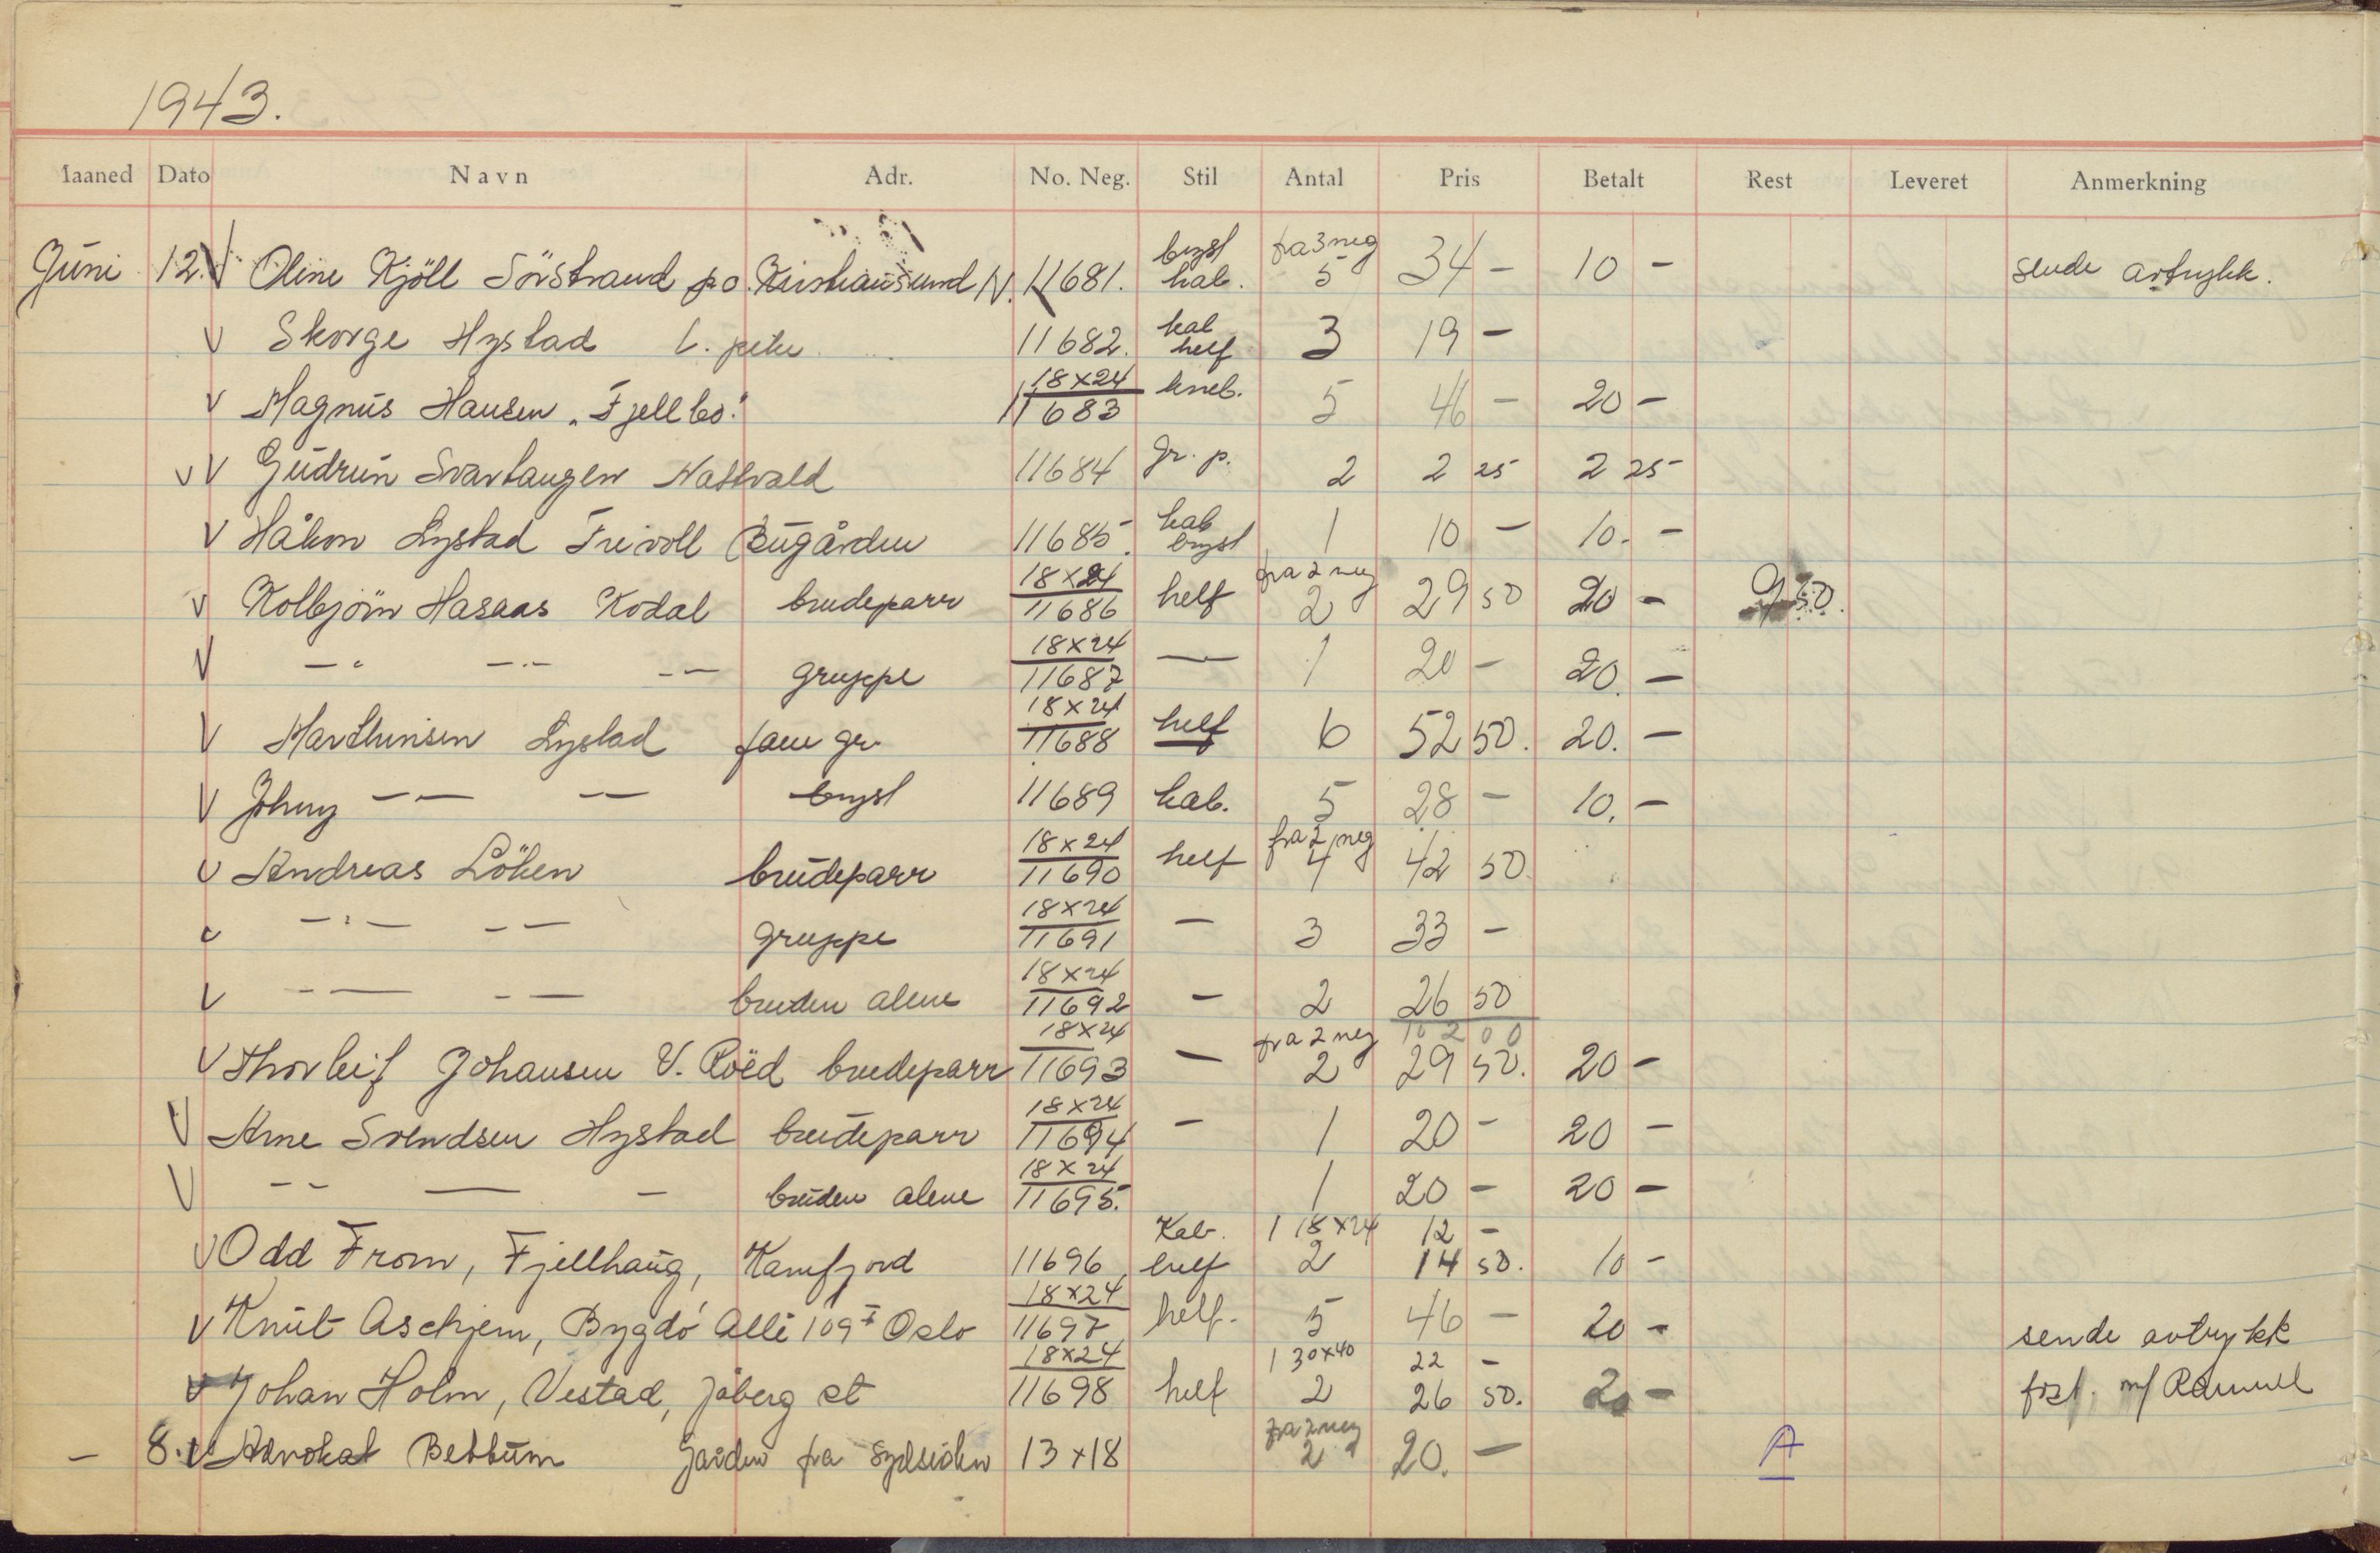 1943.
Maaned Dato Navn Adr. No. Neg. Stil Antal Pris Betalt Rest Leveret Anmerkning
Juni 12. V Oline Kjöll Sörstrand p.o. Kristiansund N. 11681. bryst kab. fra 3 neg 5 34 - 10 - sende avtrykk.
V Skorge Hystad 11682. kab helf 3 19 -
V Magnus Hansen "Fjellbo." 18x24 11683 kneb. 5 46 - 20 -
V V Gudrun Svartangen Nattvald 11684 gr. p. 2 2 25 2 25
V Håkon Lystad Trivoll Bugården 11685. kab bryst 1 10 - 10. -
V Kolbjörn Hasaas Kodal brudeparr 18x24 11686 helf fra 2 neg 2 29 50 20 - 9 50.
V -"- -"- -"- gruppe 18x24 11687 - 1 20 - 20. -
V Marthinsen Lystad fam gr. 18x24 11688 helf 6 52 50. 20. -
V Johny -"- -"- bryst 11689 kab. 5 28 - 10. -
V Andreas Löken brudeparr 18x24 11690 helf fra 2 neg 4 42 50
V -"- -"- gruppe 18x24 11691 - 3 33 -
V -"- -"- bruden alene 18x24 11692 - 2 26 50
102 00
V Thorleif Johansen V. Röed brudeparr 18x24 11693 - fra 2 neg 2 29 50. 20 -
V Arne Svendsen Hystad brudeparr 18x24 11694 - 1 20 - 20 -
V -"- - - bruden alene 18x24 11695. 1 20 - 20 -
Kab. 1 18x24 12 -
V Odd From, Fjellhaug, Kamfjord 11696 helf 2 14 50. 10 -
V Knut Aschjem, Bygdö Alle 109 I Oslo 18x24 11697 helf. 5 46 - 20 - sende avtrykk
1 30x40 22 -
V Johan Holm, Vestad, Jåberg st 18x24 11698 helf 2 26 50. 20 -
- 8. V Advokat Bettum Gården fra Sydsiden 13x18 fra 2 neg 2 20. - A